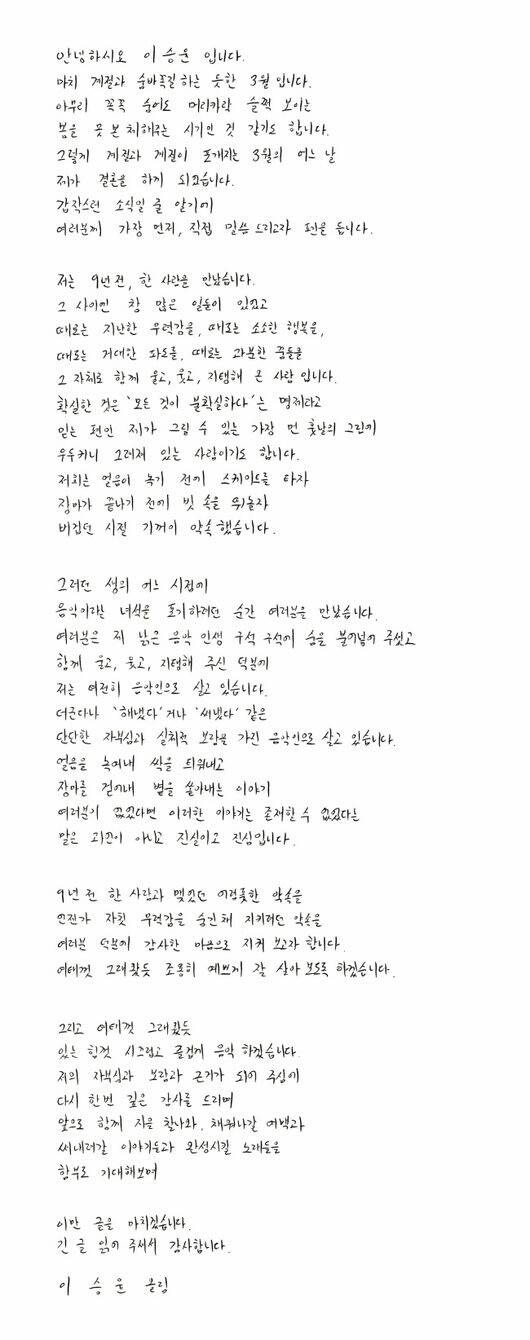 안녕하시오 이승윤 입니다.
마치 계절과 숨바꼭질 하는 듯한 3월 입니다.
아무리 꼭꼭 숨어도 머리카락 슬쩍 보이는
봄을 못 본 체 해주는 시기인 것 같기도 합니다.
그렇게 계절과 계절이 포개지는 3월의 어느 날
제가 결혼을 하게 되었습니다.
갑작스런 소식일 줄 알기에
여러분께 가장 먼저, 직접 말씀 드리고자 펜을 듭니다.

저는 9년 전, 한 사람을 만났습니다.
그 사이엔 참 많은 일들이 있었고
때로는 지난한 무력감을, 때로는 소소한 행복을,
때로는 거대한 파도를, 때로는 과분한 꿈들을
그 자체로 함께 울고, 웃고, 지탱해 온 사람 입니다.
확실한 것은 '모든 것이 불확실하다'는 명제라고
믿는 편인 제가 그릴 수 있는 가장 먼 훗날의 그림에
우두커니 그려져 있는 사람이기도 합니다.
저희는 얼음이 녹기 전에 스케이트를 타자
장마가 끝나기 전에 빗 속을 뛰놀자
버겁던 시절 기꺼이 약속했습니다.

그러던 생의 어느 시점에
음악이라는 녀석을 포기하려던 순간 여러분을 만났습니다.
여러분은 제 낡은 음악 인생 구석 구석에 숨을 불어넣어 주셨고
함께 울고, 웃고, 지탱해 주신 덕분에
저는 여전히 음악인으로 살고 있습니다.
더군다나 '해냈다'거나 '써냈다' 같은
단단한 자부심과 실체적 보람을 가진 음악인으로 살고 있습니다.
얼음을 녹여내 싹을 틔워내고
장마를 걷어내 볕을 쏟아내는 이야기
여러분이 없었다면 이러한 이야기는 존재할 수 없었다는
말은 과언이 아니고 진실이고 진심입니다.

9년 전 한 사람과 맺었던 어렴풋한 약속을
언젠가 자칫 무력감을 숨긴 채 지키려던 약속을
여러분 덕분에 감사한 마음으로 지켜 보고자 합니다.
여태껏 그래왔듯 조용히 예쁘게 잘 살아 보도록 하겠습니다.

그리고 여태껏 그래왔듯
있는 힘껏 시끄럽고 즐겁게 음악 하겠습니다.
저의 자부심과 보람과 근거가 되어 주심에
다시 한번 깊은 감사를 드리며
앞으로 함께 지을 찰나와, 채워나갈 여백과
써내려갈 이야기들과 완성시킬 노래들을
함부로 기대해보며

이만 글을 마치겠습니다.
긴 글 읽어 주셔서 감사합니다.
이 승 윤 올림